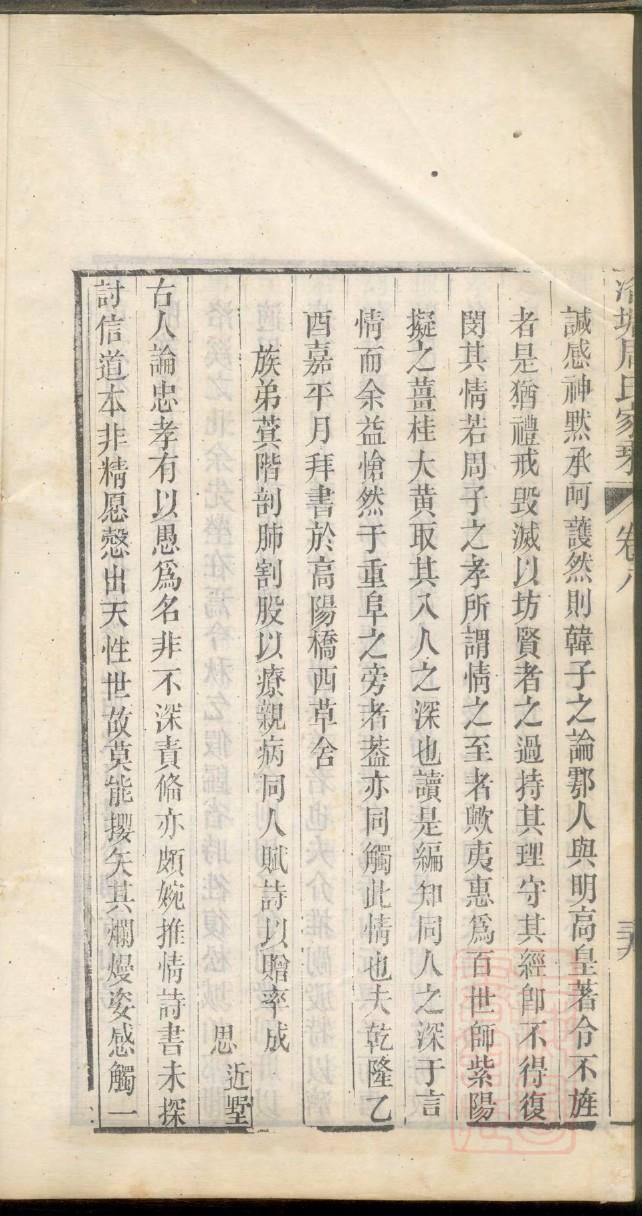 周氏家乘 卷八
誠感神默承呵護然則韓子之論鄠人與明高皇著令不旌
者是猶禮戒毀滅以坊賢者之過持其理守其經卽不得復
閔其情若周子之孝所謂情之至者歟夷惠為百世師紫陽
擬之薑桂大黃取其入人之深也讀是編知同人之深于言
情而余益愴然于重阜之旁者葢亦同觸此情也夫乾隆乙
酉嘉平月拜書於高陽橋西草舍
族弟蓂階剖肺割股以療親病同人賦詩以贈率成
思 近墅
古人論忠孝有以愚爲名非不深責備亦頗婉推情詩書未探
討信道本非精愿慤出天性世故莫能攖矢其爛熳姿感觸一